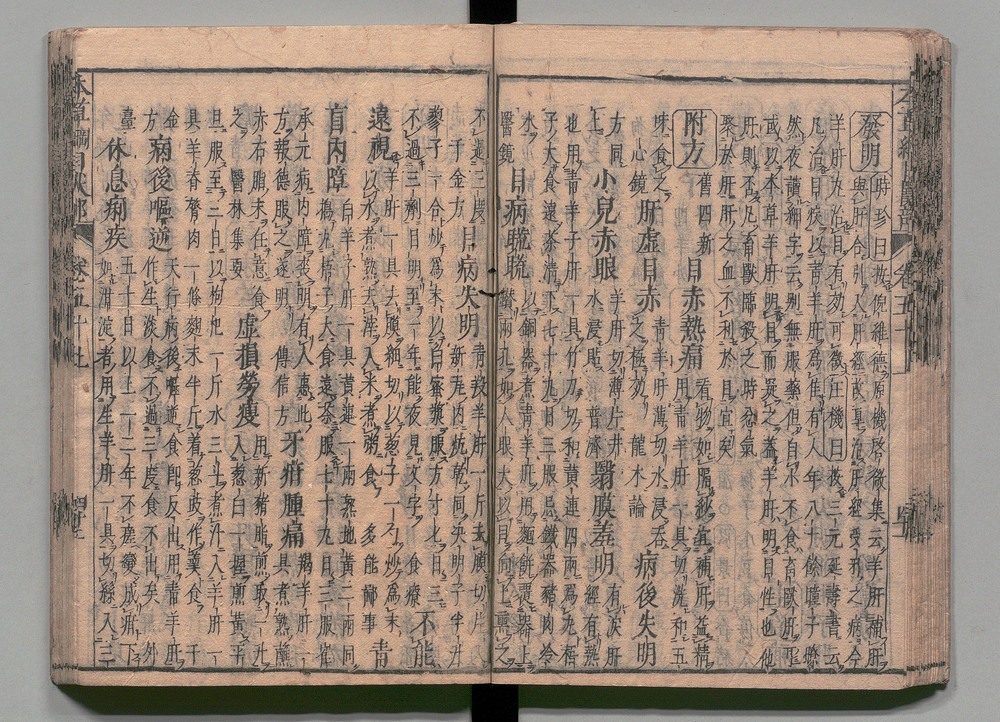 發明 時珍曰按倪維德原機啓微集云羊肝補肝
與肝合引入肝經故專治肝經受邪之病今
羊肝丸治目有効可徴汪機曰按三元延壽書云
凡治目疾以青羊肝為佳有人年八十餘瞳子瞭
然夜讀細字云別無服藥但自小不食畜獸肝耳
或以本草羊肝明目而疑之蓋羊肝明目性也他
肝則不凡畜獸臨殺之時忿氣
聚於肝肝之血不利於目宜矣
附方 舊四新 目赤熱痛 看物如隔紗宜補肝益精
用青羊肝一具切洗和五
味食之 心鏡 肝虛目赤 青羊肝薄切水浸呑
之極効 龍木論 病後失明
方同上 小兒赤眼 羊肝切薄片井
水浸貼 普濟 翳膜羞明 有淚肝
經有熱
也用青羊子肝一具竹刀切和黄連四兩為丸梧
子大食遠茶清下七十九日三服忌鐵器豬肉冷
水 醫鏡 目病䀮䀮 以銅器煮青羊肝用麵餅覆器上
鑽兩孔如人眼大以目向上熏之
不過三度 千金方 目病失明 青羖羊肝一斤去膜切片
新瓦内炕乾同決明子半升
蓼子一合炒為末以白蜜漿服方寸匕日三
不過三劑目明至一年能夜見文字 食療 不能
遠視 羊肝一具去膜細切以葱子一勺炒為末
以水煮熟去滓入米煮粥食 多能鄙事 青
盲内障 白羊子肝一具黄連一兩熟地黄二兩同
搗丸梧子大食遠茶服七十九日三服崔
承元病内障喪明有人惠此
方報德服之遂明 傳信方 牙疳腫痛 羯羊肝一具煮熟蘸
赤石脂末任意食
之 醫林集要 虛損勞瘦 用新豬脂煎取一升
入葱白一握煎黄平
旦服至三日以枸杞一斤水三斗煮汁入羊肝一
具羊脊膂肉一條麴末半斤着葱豉作羹食 千
金方 病後嘔逆 天行病後嘔逆食即反出用青羊肝
作生淡食不過三度食不出矣 外
臺 休息痢疾 五十日以上一二年不瘥變成疳下
如泔淀者用生羊肝一具切絲入三